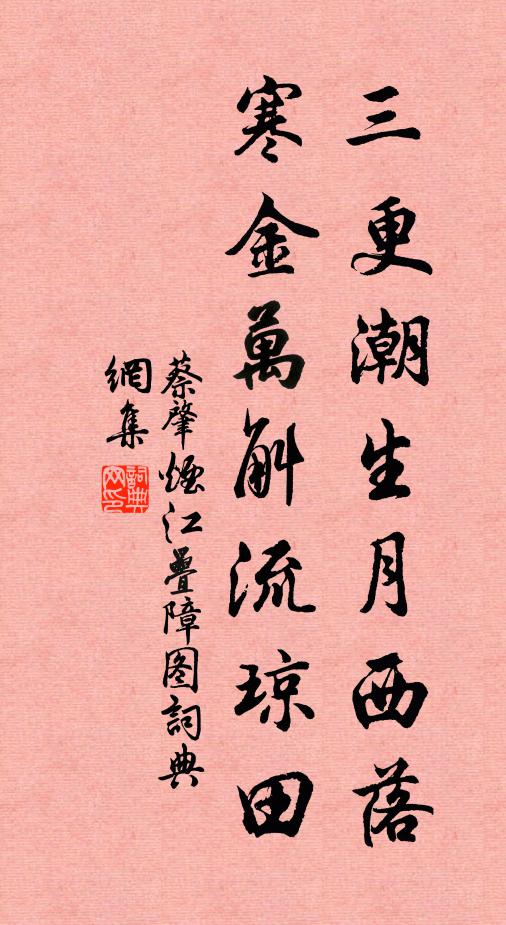 三更潮生月西落
寒金萬斛流琼田
蔡肇煙江疊障图詞典
網集
詞典网印